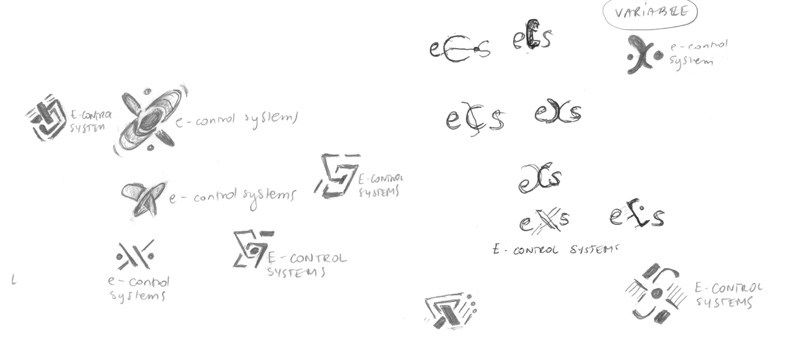 VARIABLE
ecs
ecs
e-control
system
E-CONTROL
SYSTEM
e-control systems
ecs
exs
E-CONTROL
SYSTEMS
e-control systems
exs
exs
ecs
E-CONTROL SYSTEMS
E-CONTROL
SYSTEMS
e-control
systems
L
E-CONTROL
SYSTEMS